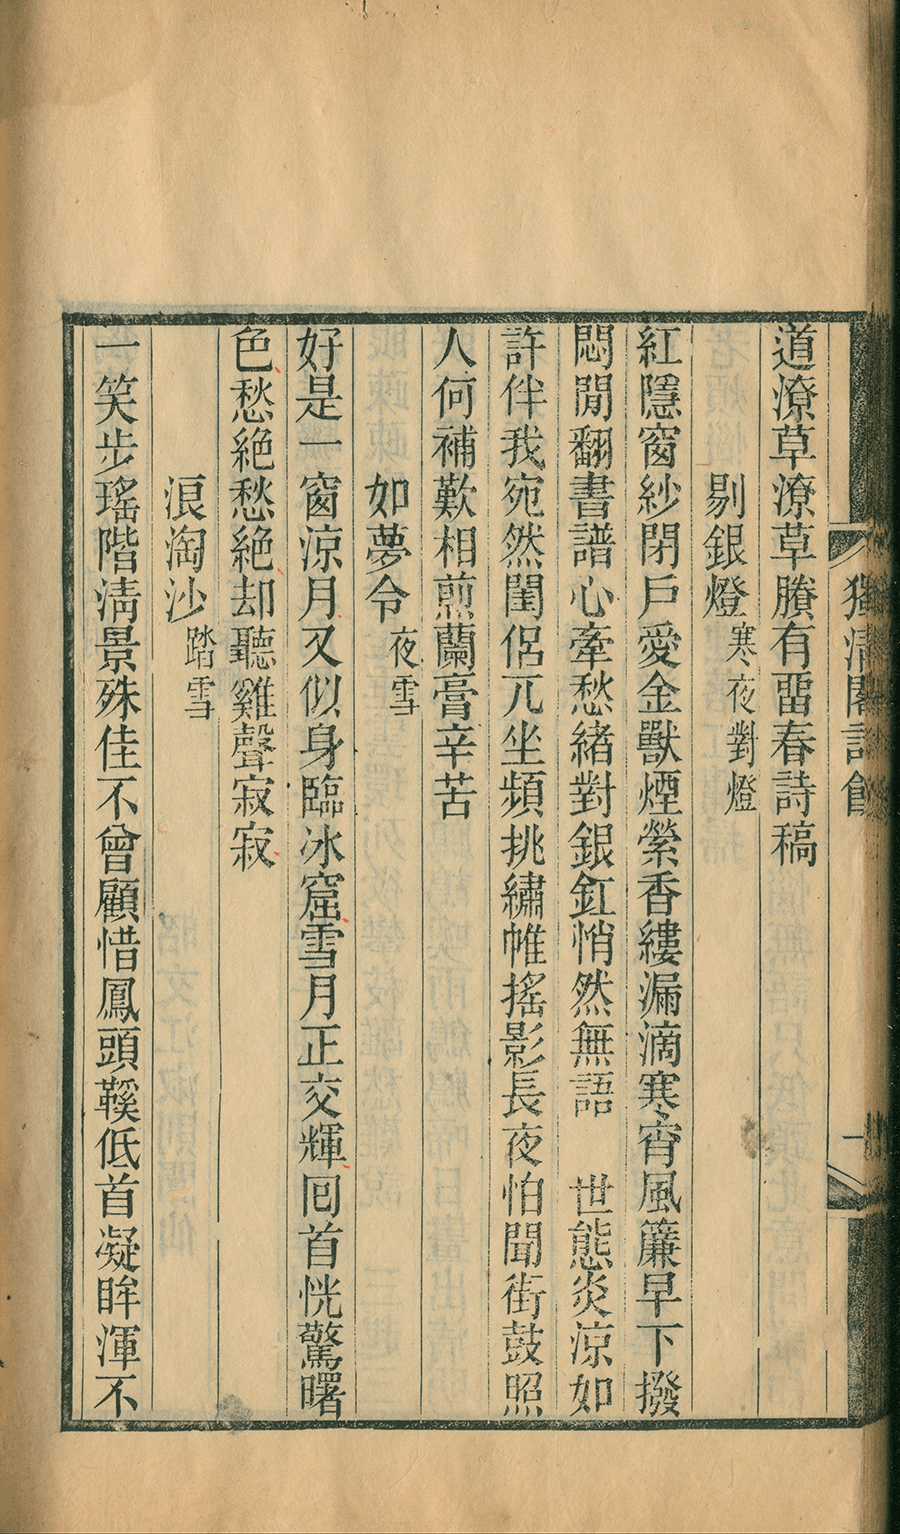 道潦草潦草賸有畱春詩稿
剔銀燈 寒夜對燈
紅隱窗紗閉戶愛金獸煙縈香縷漏滴寒宵風簾早下撥
悶閒翻書譜心牽愁緒對銀釭悄然無語 世態炎涼如
許伴我宛然閨侶兀坐頻挑繡帷搖影長夜怕聞街鼓照
人何補歎相煎蘭膏辛苦
如夢令 夜雪
好是一窗涼月又似身臨冰窟雪月正交輝囘首恍驚曙
色愁絕愁絕却聽雞聲寂寂
浪淘沙 踏雪
一笑步瑤階淸景殊佳不曾顧惜鳳頭鞵低首凝眸渾不